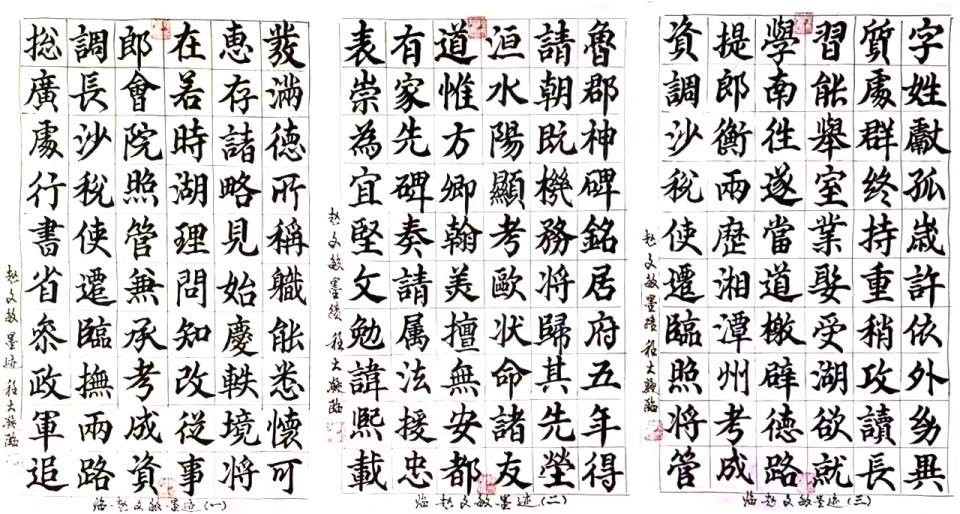 發滿德所稱職能悉懷可
惠存諸略見始慶軼境將
在若時湖理問知改從事
郎會院照管無承考成資
調長沙稅使遷臨撫兩路
総廣處行書省叅政軍追
赵文敏墨迹 程大臨
临赵文敏墨迹(一)
魯郡神碑銘居府五年得
請朝既機務將歸其先塋
洹水陽顯考歐狀命諸友
道惟方卿翰美擅無安都
有家先碑奏請属法援忠
表崇為宜堅文勉諱熙載
赵文敏墨蹟 程大臨
临赵文敏墨迹(二)
字姓獻孤歲許依外幼異
質處群終持重稍攻讀長
習能舉室業娶受湖欲就
學南往遂當道檄辟德路
提郎衡兩歷湘潭州考成
資調沙稅使遷臨照將管
赵文敏墨蹟 程大臨
临赵文敏墨迹(三)